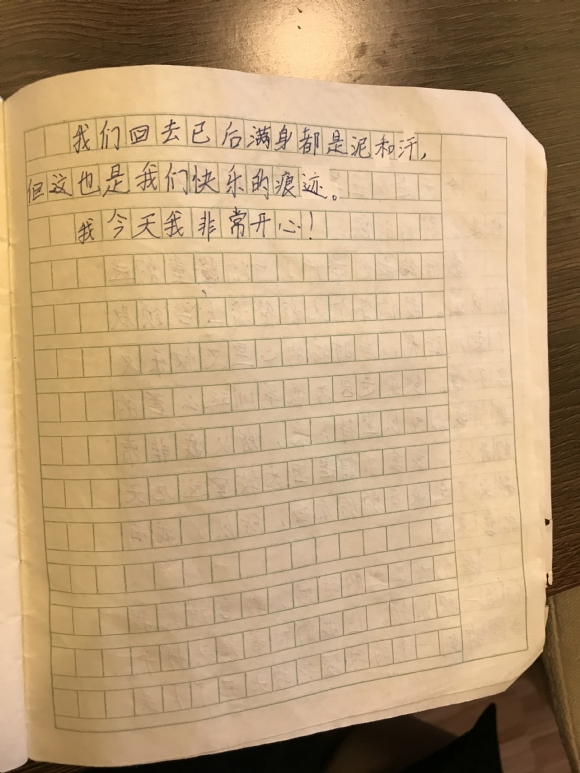 我们回去已后满身都是泥和汗,
但这也是我们快乐的痕迹。
我今天我非常开心!